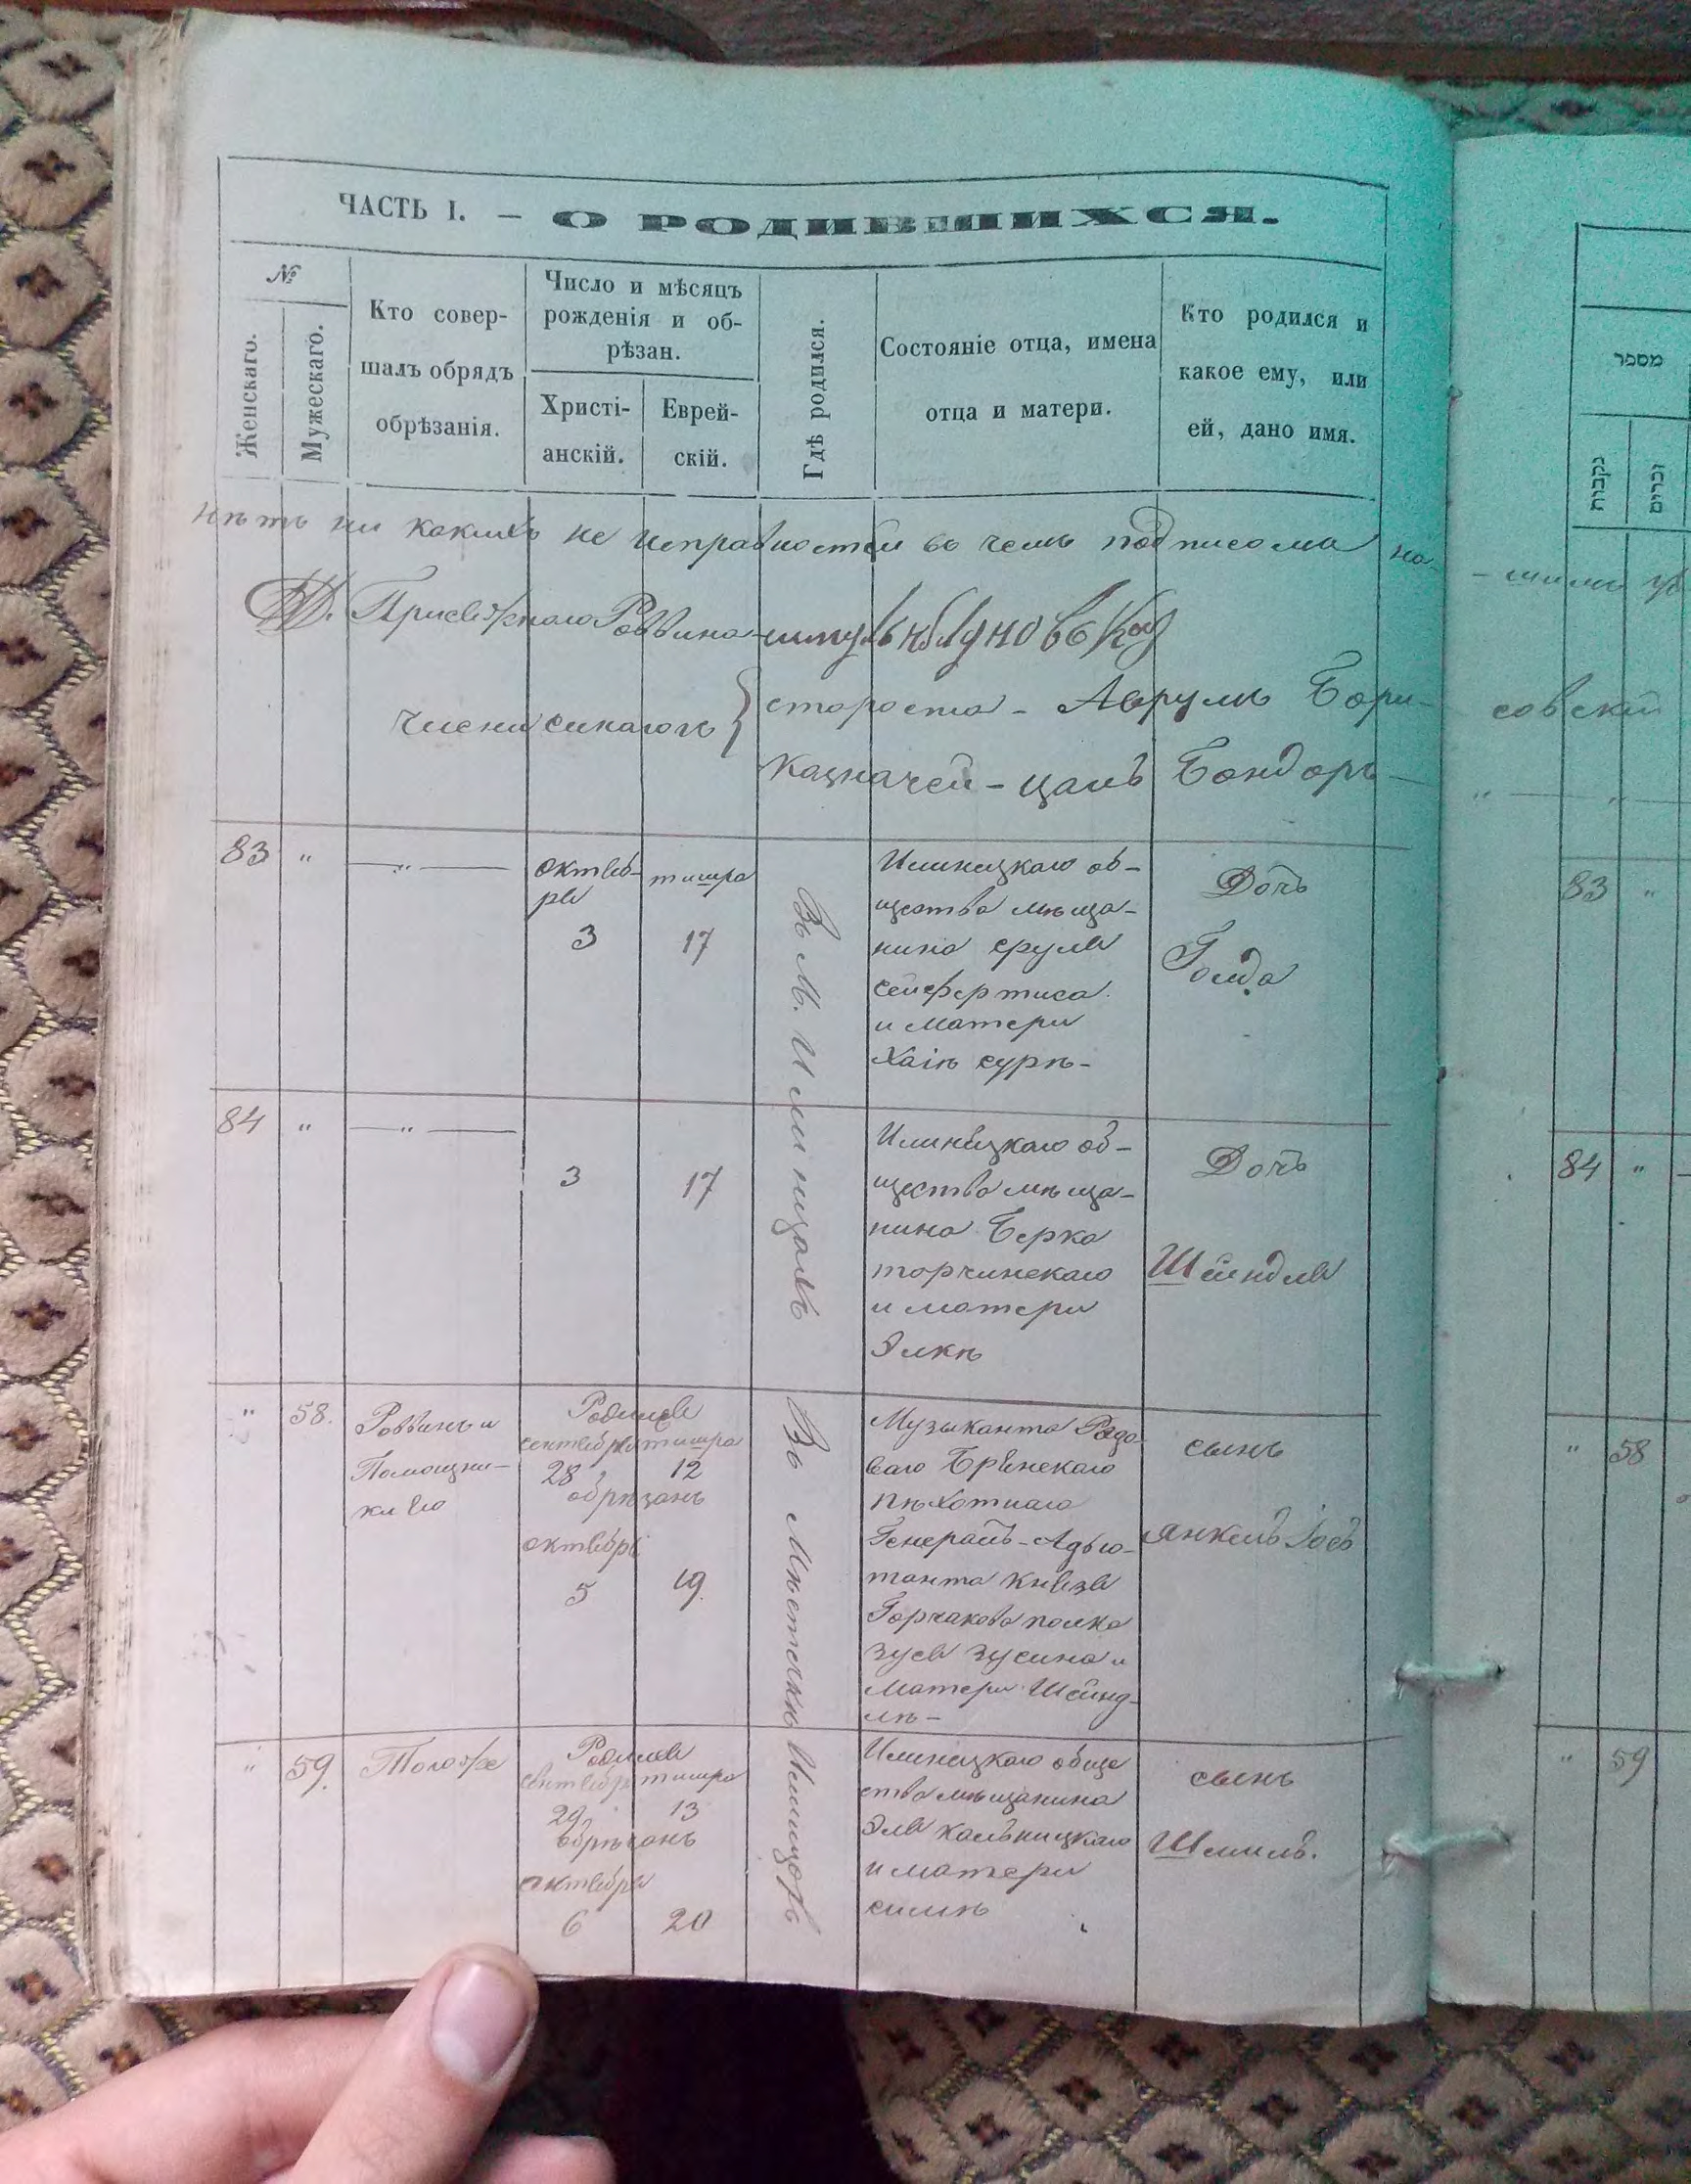 ЧАСТЬ I. — О РОДИВШИХСЯ.
№
Женскаго.
Мужескаго.
Кто совер-
шалъ обрядъ
обрѣзанія.
Число и мѣсяцъ
рожденія и об-
рѣзан.
Христі-
анскій.
Еврей-
скій.
Гдѣ родился.
Состояніе отца, имена
отца и матери.
Кто родился и
какое ему, или
ей, дано имя.
нѣтъ ни какихъ не исправностей въ чемъ подписома на-
Раввина
члени синагоги
староста - Аврумъ Бори-
казначей - Бондаръ
83 " — " —
октяб-
ря
3
тишра
17
Въ М. Илинцахъ
Илинецкаго об-
щества мѣща-
нина Срула
Сейфертиса
и матери
Хаіи сурѣ-
Дочь
Голда
84 " — " —
3
17
Илинецкаго об-
щества мѣща-
нина Берка
торчинскаго
и матери
Элкѣ
Дочь
Шейндля
" 58.
Раввинъ и
Помощни-
Родился
сентября тишра
28 12
обрѣзанъ
октября
5 19.
Въ Мѣстечкѣ Илинцахъ
Музыканта Рядо-
ваго
пѣхотнаго
Генералъ-Адъю-
танта Князя
Горчакова полка
Зуся Зусина и
Матери Шейнд-
лѣ-
сынъ
Янкель Іосъ
" 59.
Тотоже
Родился
сентября тишра
29 13
обрѣзанъ
октября
6 20
Илинецкаго обще
ства мѣщанина
Эля кальницкаго
и матери
симѣ
сынъ
Шмиль.
מספר
נקבות
זכרים
совскій
" — "
83 "
84 "
" 58
" 59